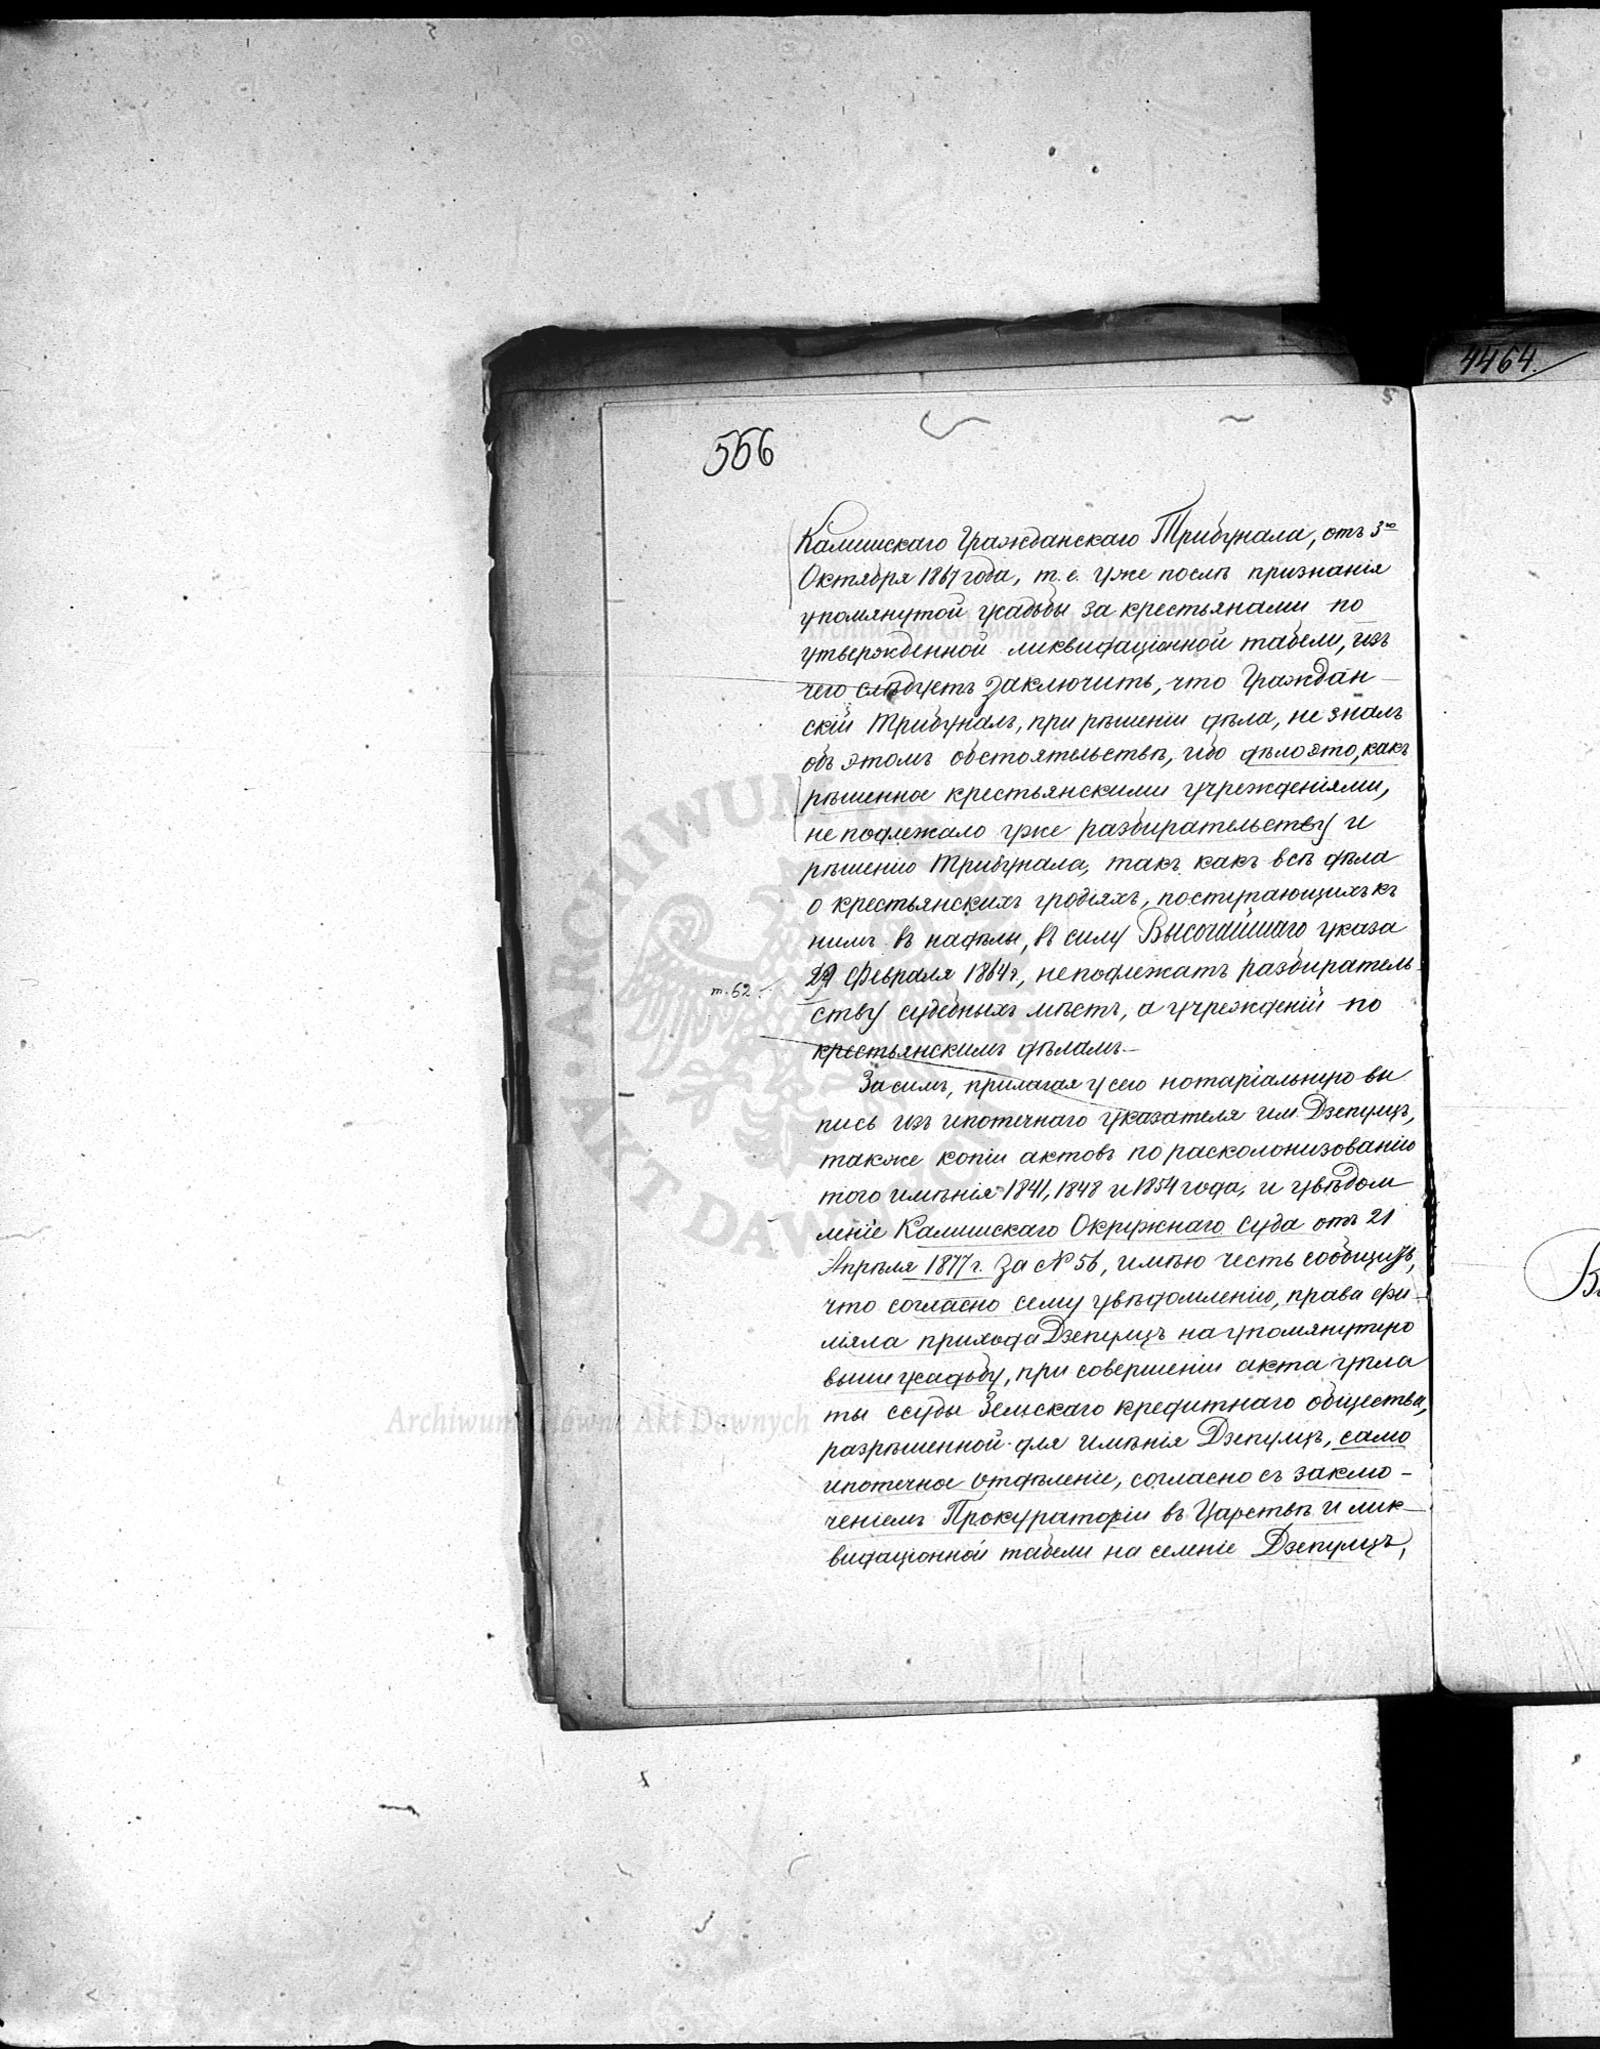 4464.
556
Калишскаго Гражданскаго Трибунала, отъ 3го
Октября 1867 года, т. е. уже послѣ признанія
упомянутой усадьбы за крестьянами по
утвержденной ликвидаціонной табели, изъ
чего слѣдуетъ заключить, что Граждан-
скій Трибуналъ, при рѣшеніи дѣла, не зналъ
объ этомъ обстоятельствѣ, ибо дѣло это, какъ
рѣшенное крестьянскими учрежденіями,
не подлежало уже разбирательству и
рѣшенію Трибунала, такъ какъ всѣ дѣла
о крестьянскихъ угодіяхъ, поступающихъ къ
нимъ въ надѣлы, въ силу Высочайшаго указа
19 Февраля 1864 г., не подлежатъ разбиратель-
т. 62.
ству судебныхъ мѣстъ, а учрежденій по
крестьянскимъ дѣламъ.—
Засимъ, прилагая у сего нотаріальную вы
пись изъ ипотечнаго указателя им. Дзепулць,
также копіи актовъ по расколонизованію
того имѣнія 1841, 1848 и 1854 года, и увѣдом
леніе Калишскаго Окружнаго Суда отъ 21
Апрѣля 1877 г. за № 56, имѣю честь сообщить,
что согласно сему увѣдомленію, права фи-
ліяла прихода Дзепулць на упомянутую
выше усадьбу, при совершеніи акта упла
ты ссуды Земскаго кредитнаго общества,
разрѣшенной для имѣнія Дзепулць, само
ипотечное отдѣленіе, согласно съ заклю-
ченіемъ Прокураторіи въ Царствѣ и лик-
видаціонной табели на селеніе Дзепулць,
Archiwum Główne Akt Dawnych